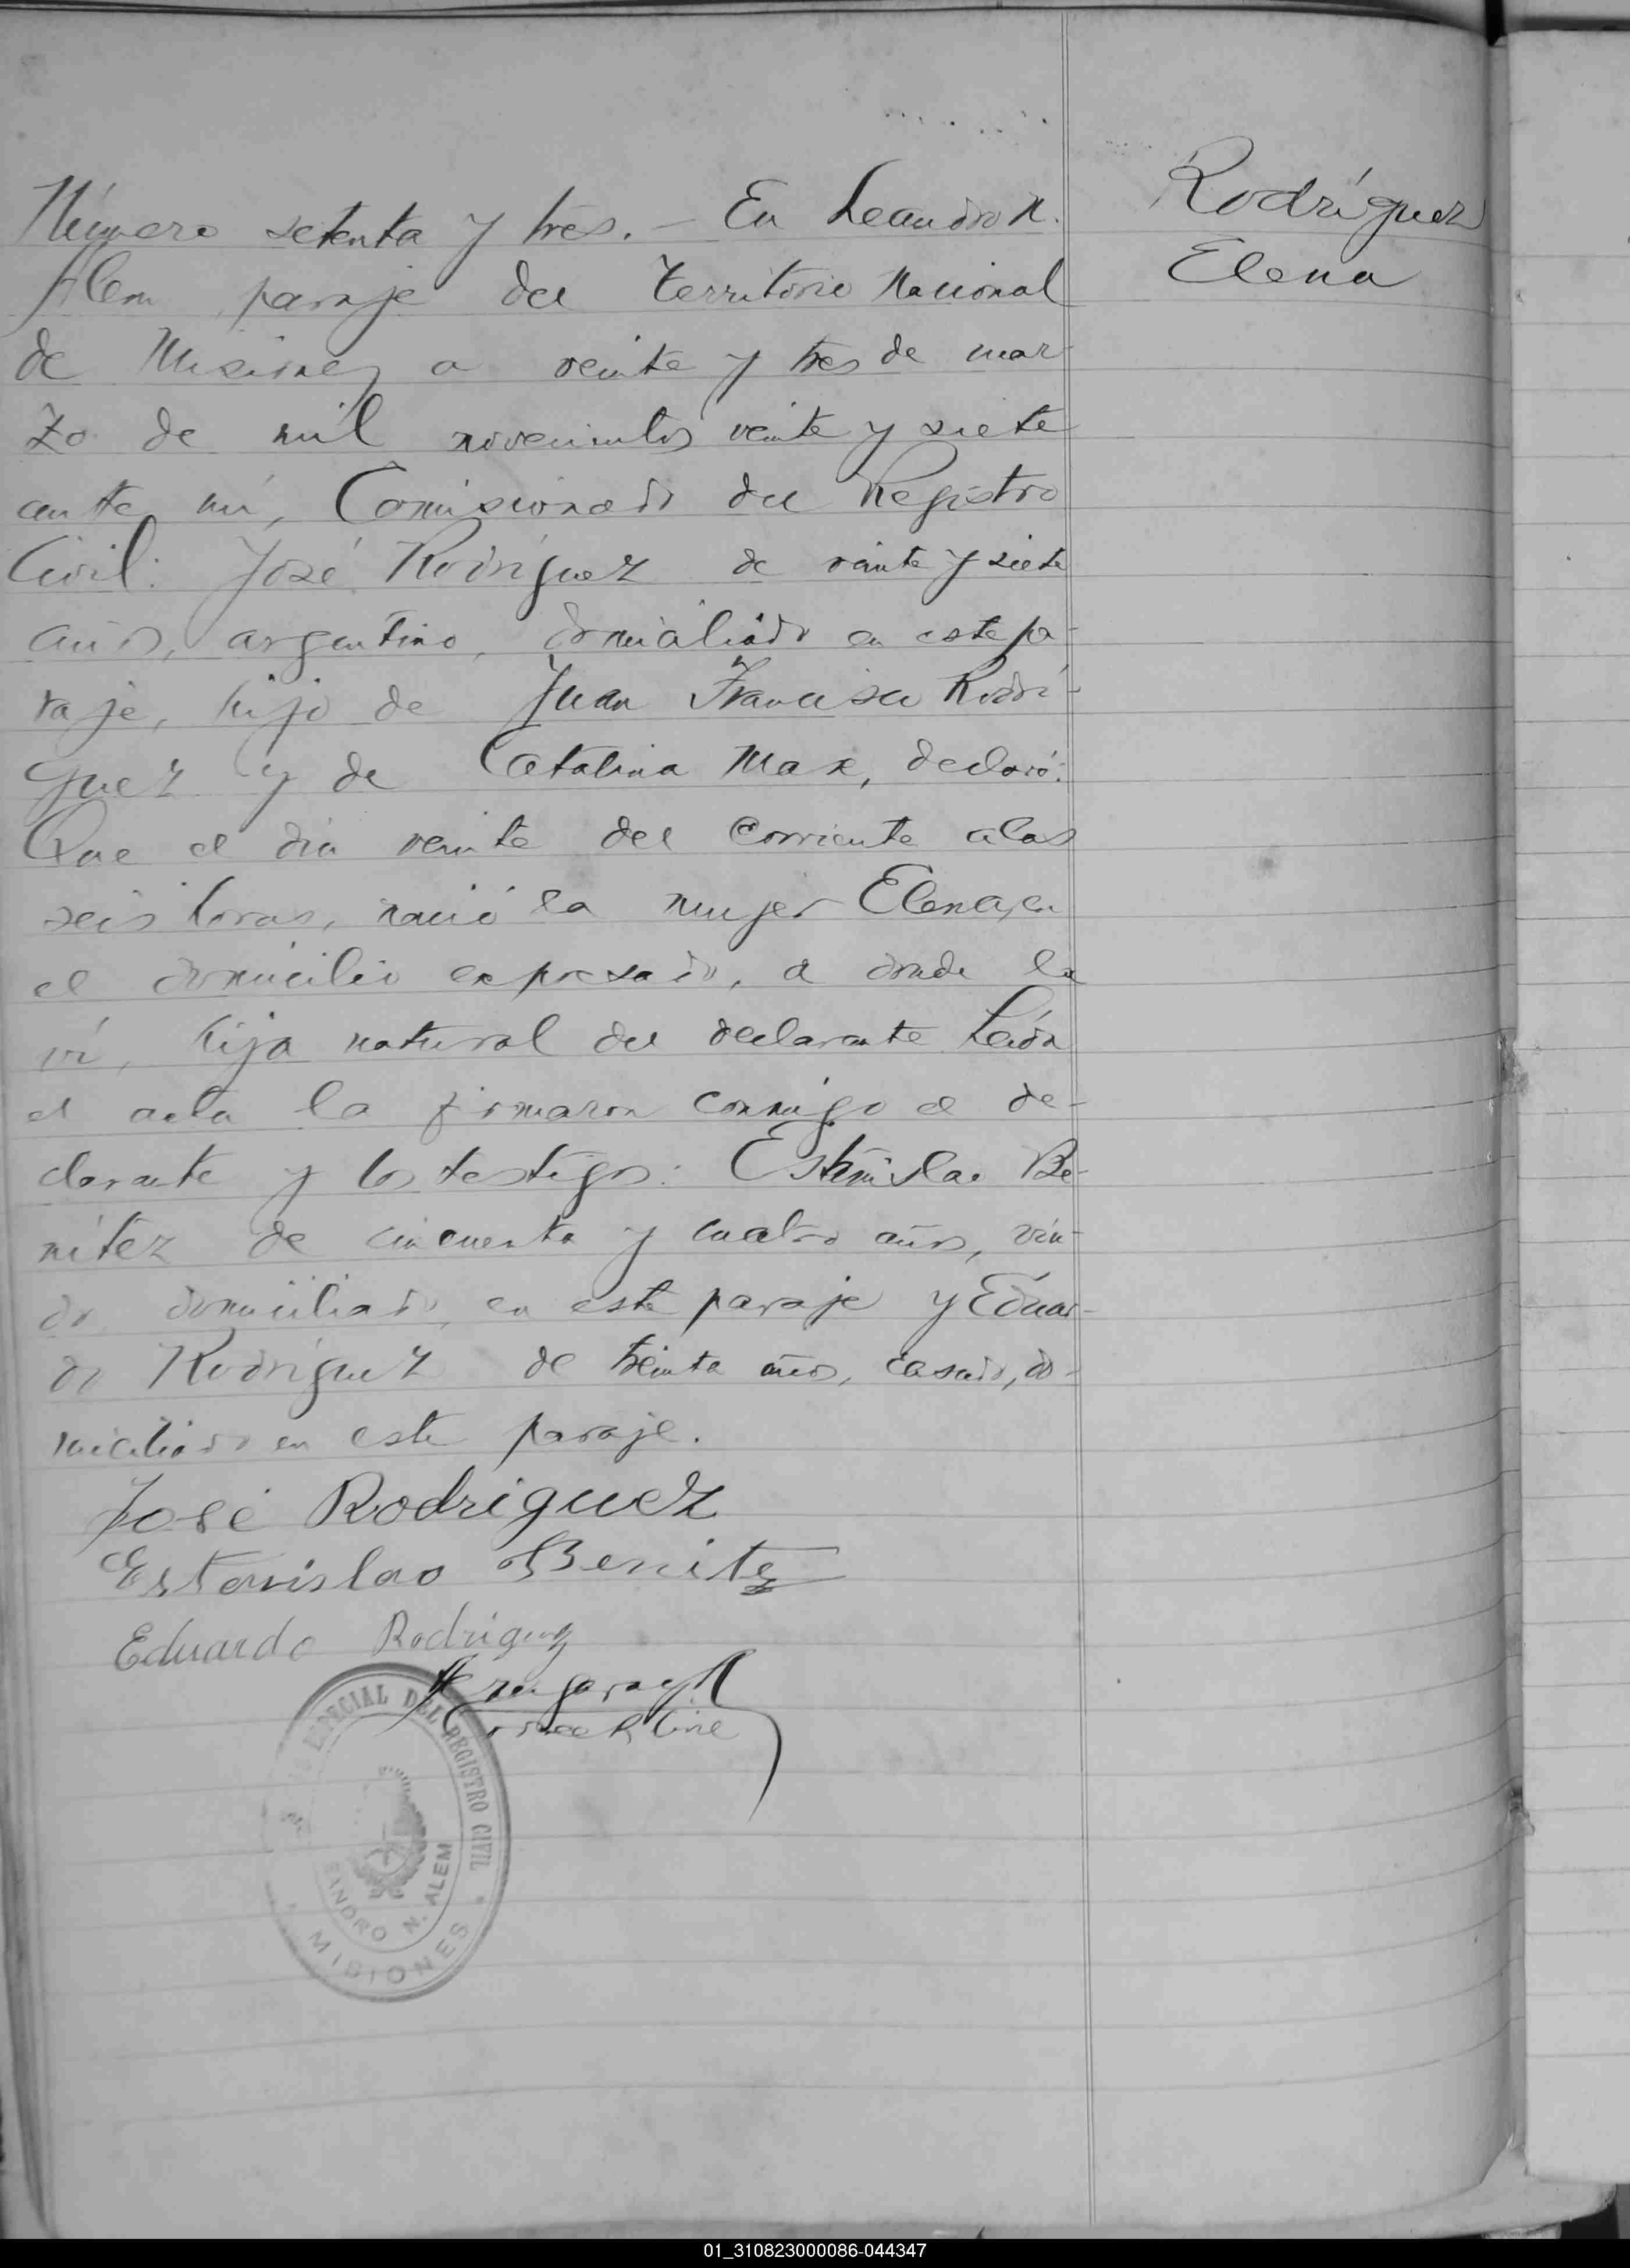 Número setenta y tres. — En Leandro N.
Alem paraje del Territorio Nacional
de Misiones a veinte y tres de mar-
zo de mil novecientos veinte y siete
ante mí, Comisionado del Registro
Civil: José Rodríguez de veinte y siete
años, argentino, domiciliado en este pa-
raje, hijo de Juan Francisco Rodrí-
guez y de Catalina Max, declaró:
Que el día veinte del corriente a las
seis horas, nació la mujer Elena, en
el domicilio expresado, a donde la
ví, hija natural del declarante Leída
el acta la firmaron conmigo el de-
clarante y los testigos: Estanislao Be-
nítez de cincuenta y cuatro años, viu-
do domiciliado en este paraje y Eduar-
do Rodríguez de treinta años, casado, do-
miciliado en este paraje.
José Rodriguez
Estanislao Benitez
Eduardo Rodriguez
ESPECIAL DEL REGISTRO CIVIL
LEANDRO N. ALEM
MISIONES
Rodríguez
Elena
01_310823000086-044347